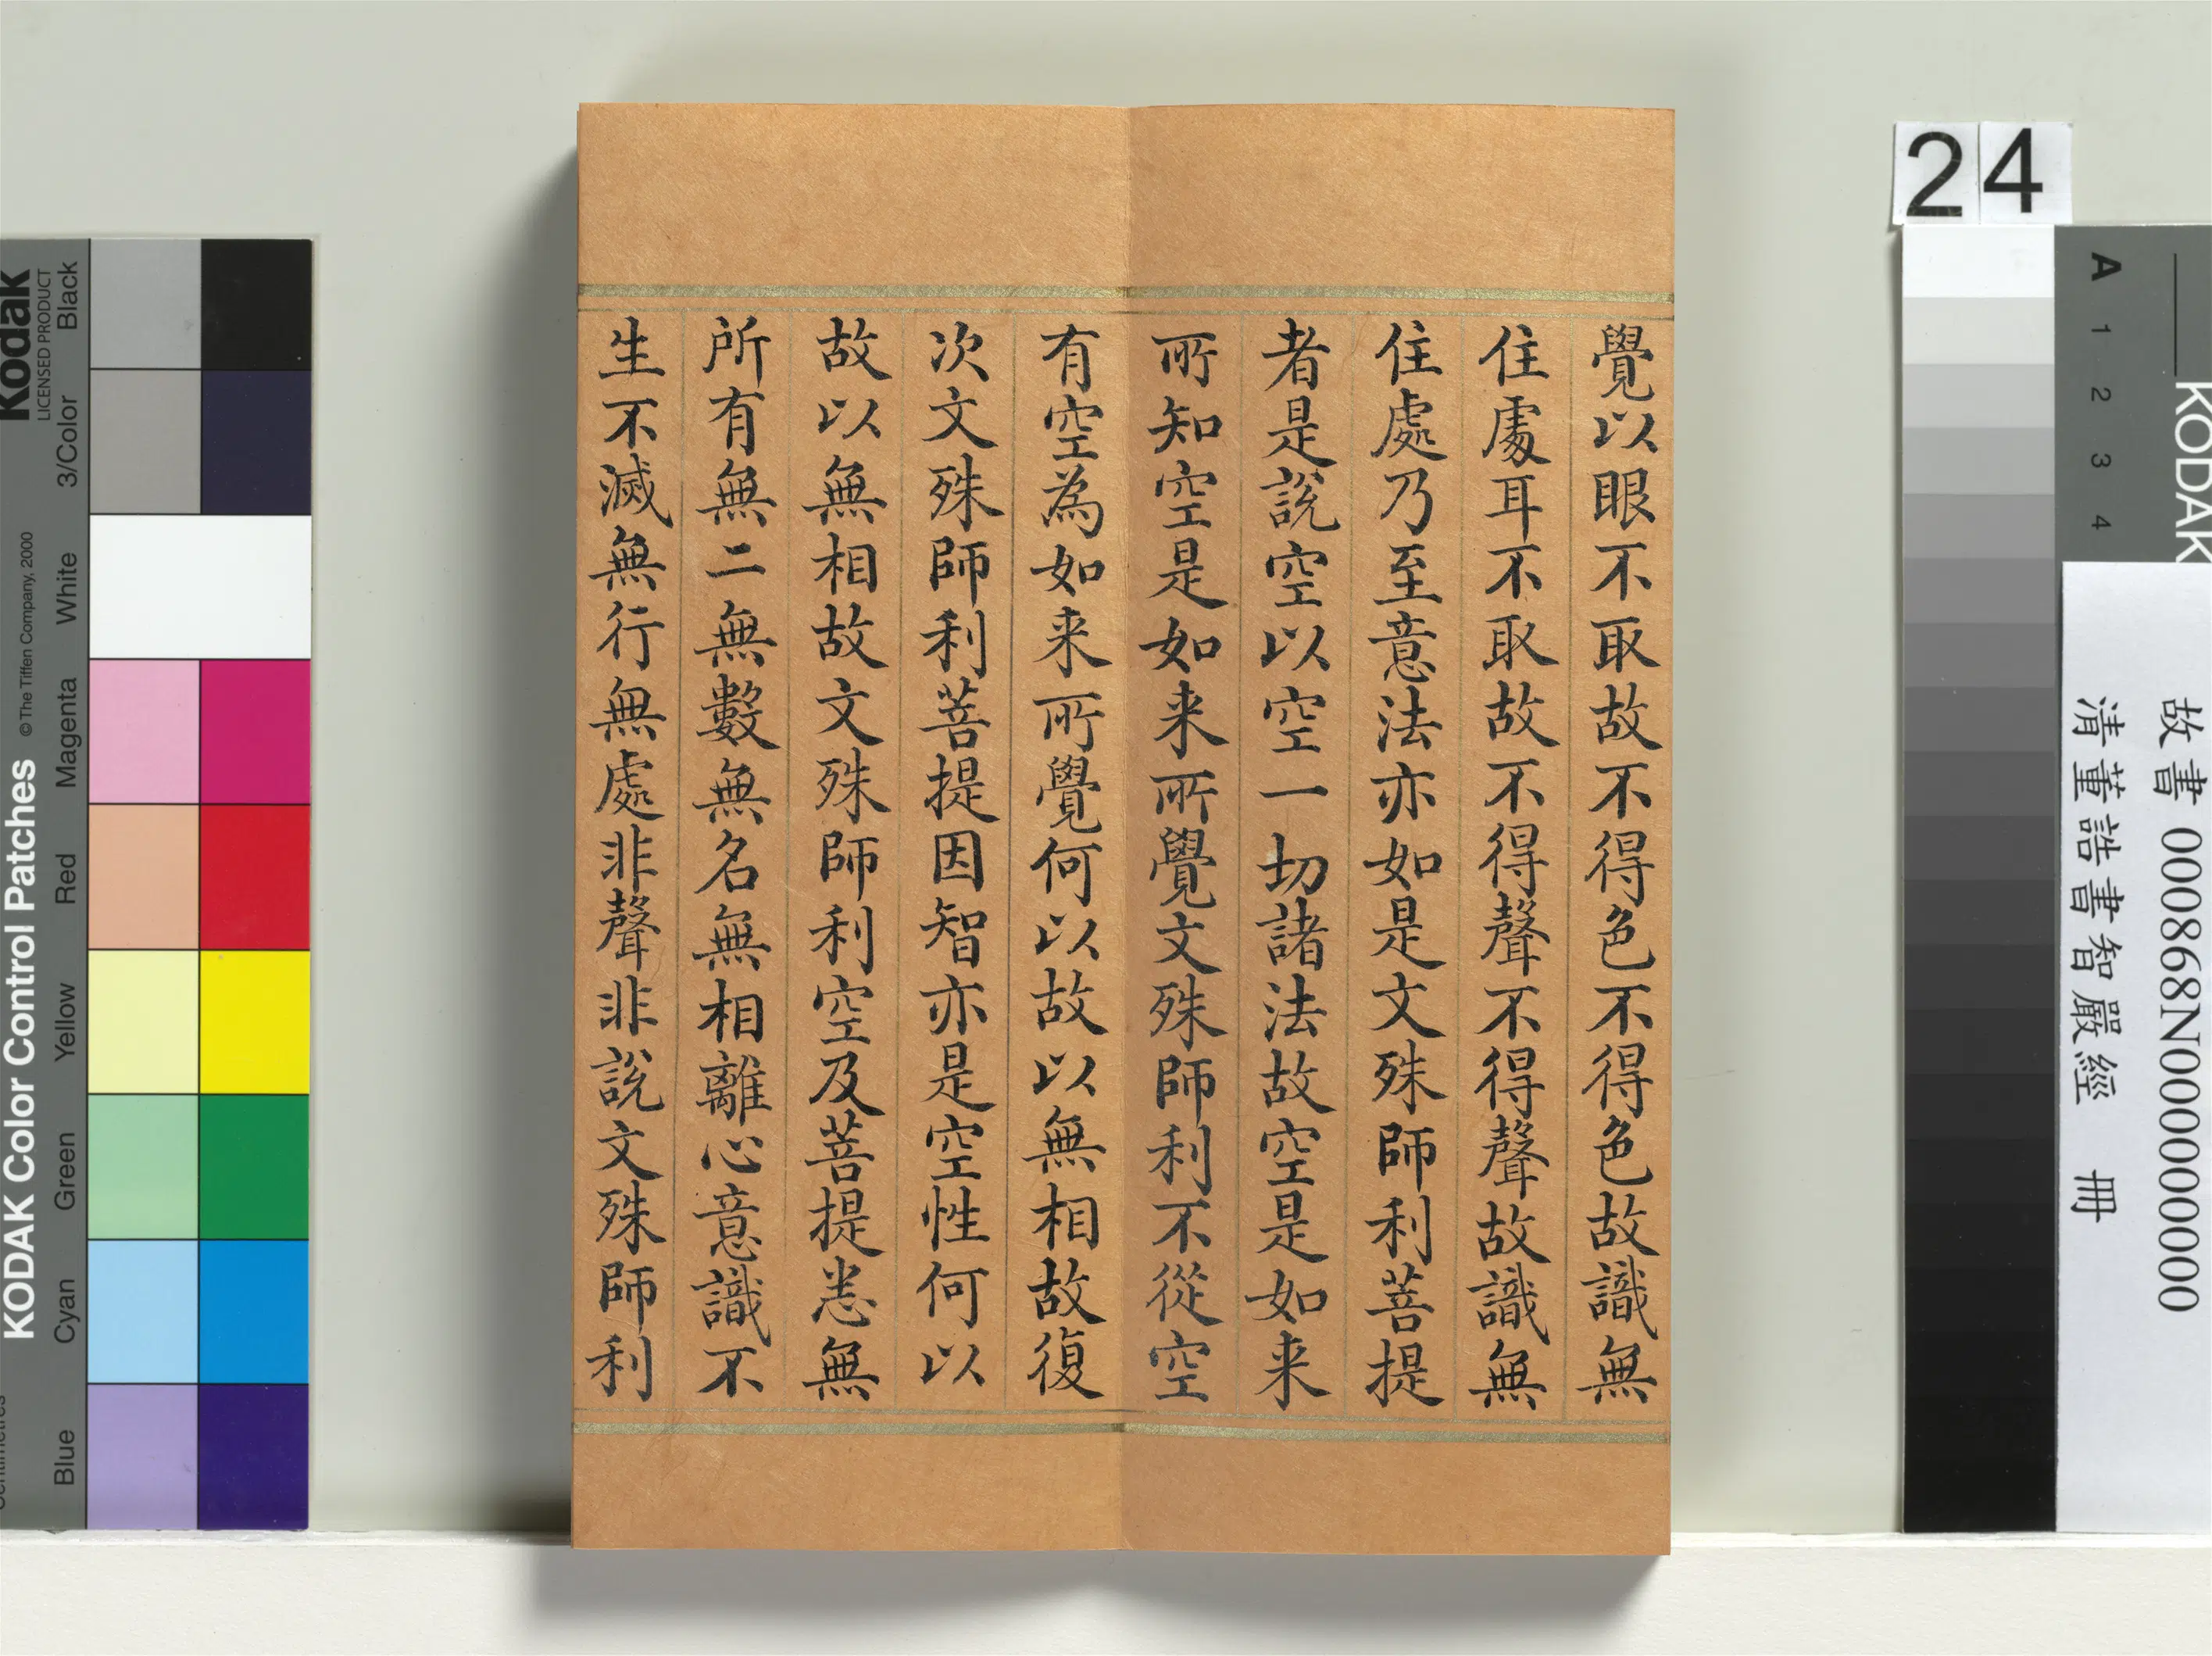 覺以眼不取故不得色不得色故識無
住處耳不取故不得聲不得聲故識無
住處乃至意法亦如是文殊師利菩提
者是說空以空一切諸法故空是如来
所知空是如来所覺文殊師利不從空
有空為如来所覺何以故以無相故復
次文殊師利菩提因智亦是空性何以
故以無相故文殊師利空及菩提悉無
所有無二無數無名無相離心意識不
生不滅無行無處非聲非說文殊師利
24
故書 000868N000000000
清董誥書智嚴經 冊
KODAK
A 1 2 3 4
Kodak
LICENSED PRODUCT
KODAK Color Control Patches ©The Tiffen Company, 2000
Blue Cyan Green Yellow Red Magenta White 3/Color Black